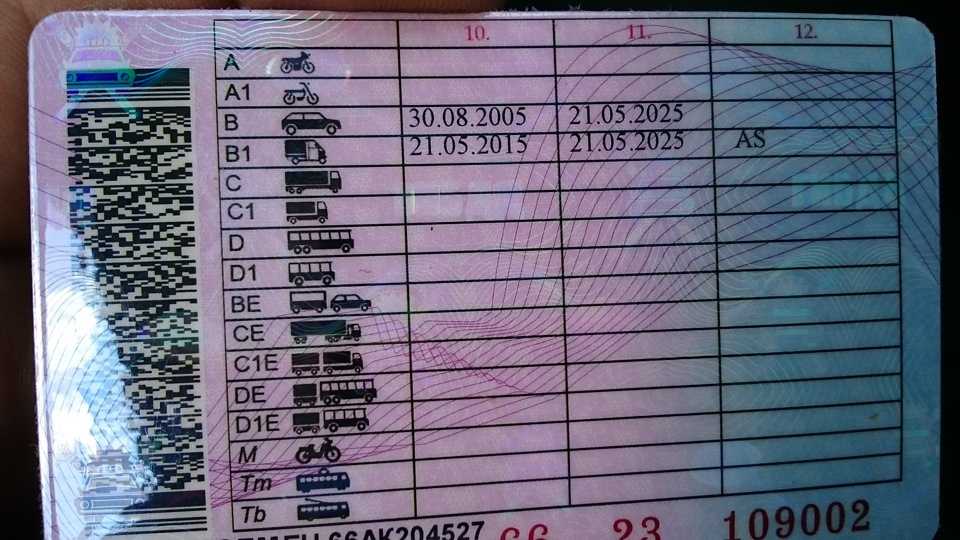 10. 11. 12.
A
A1
B 30.08.2005 21.05.2025
B1 21.05.2015 21.05.2025 AS
C
C1
D
D1
BE
CE
C1E
DE
D1E
M
Tm
Tb
66АК204527 66 23 109002